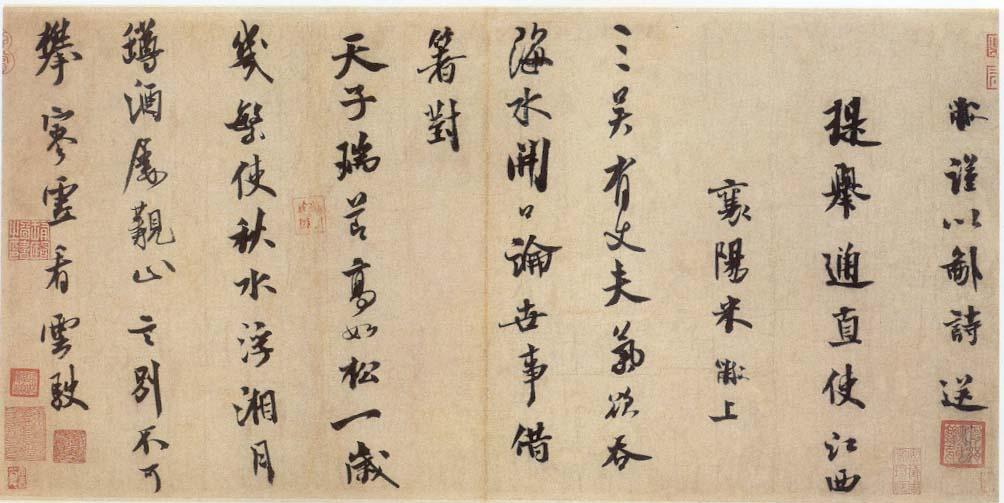 黻謹以鄙詩送
提舉通直使江西
襄陽米黻上
三吳有丈夫氣欲吞
海水開口論世事借
箸對
天子瑞節高如松一歲
幾繁使秋水浮湘月
罇酒屢觀山之別不可
攀寥雲看雲駛